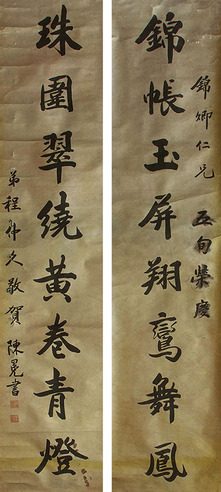 錦卿仁兄 五旬榮慶
錦帳玉屏翔鸞舞鳳
珠圍翠繞黃卷青燈
弟程仲久敬賀 陳冕書